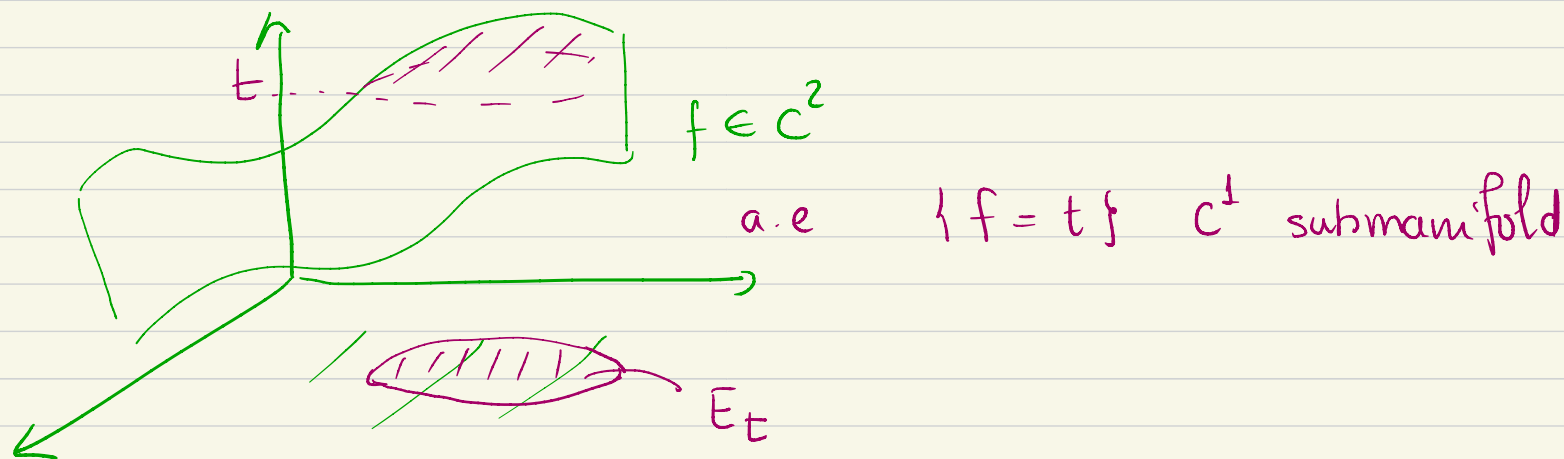 t
f ∈ C²
a.e {f = t} C¹ submanifold
E_t